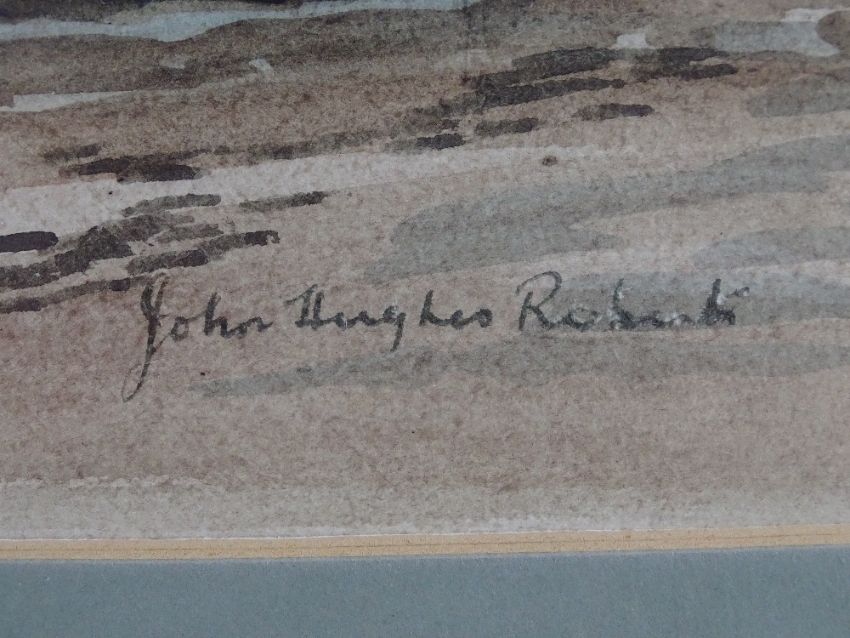 John Hughes Roberts